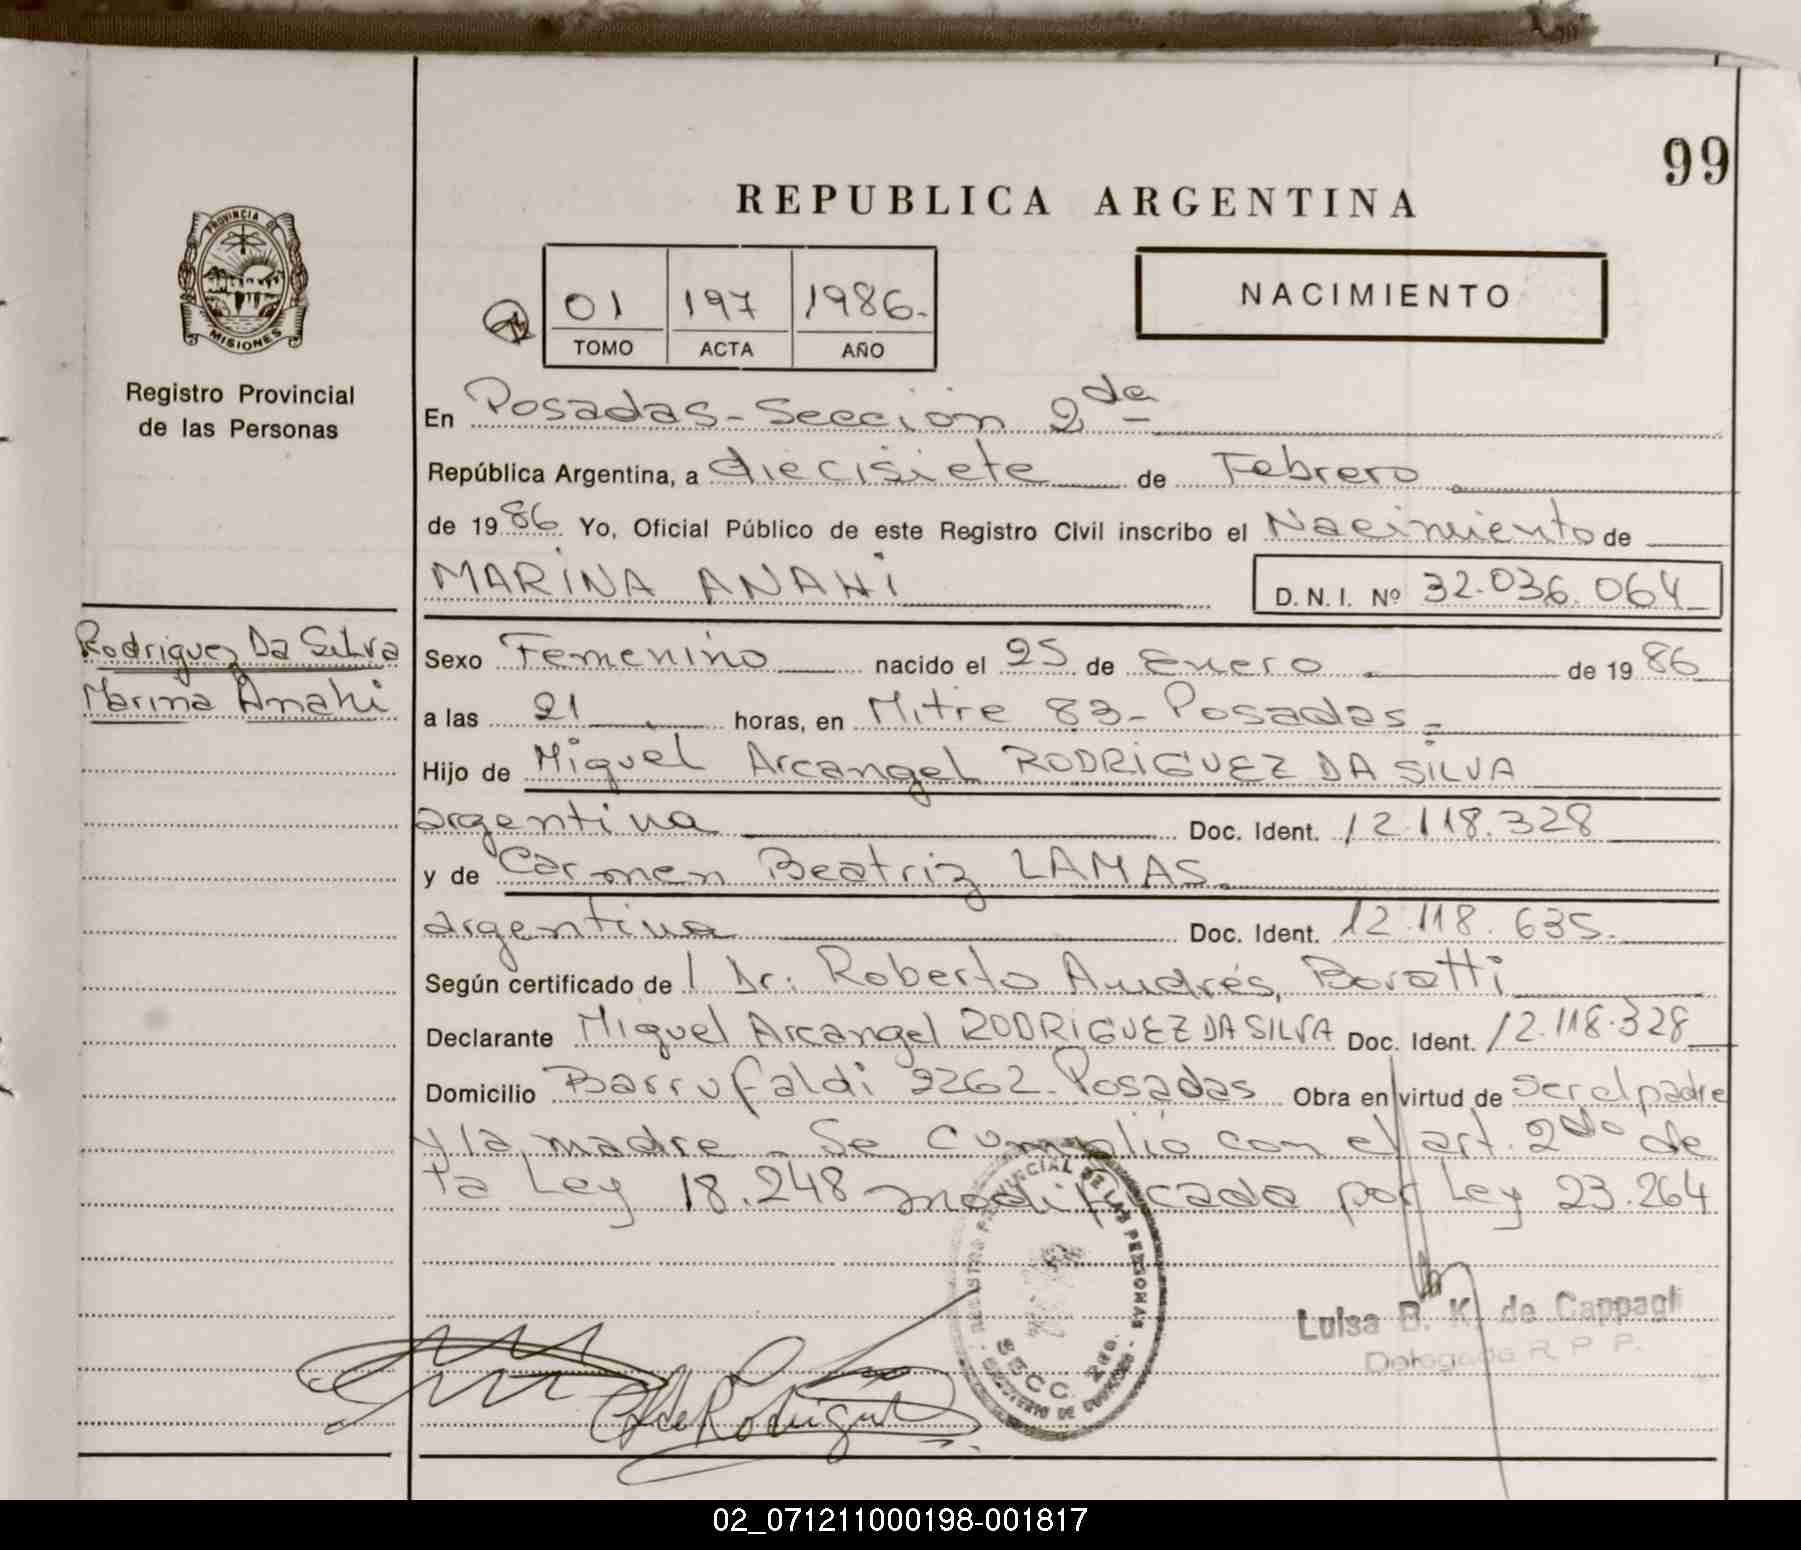 99
REPUBLICA ARGENTINA
PROVINCIA DE
MISIONES
Registro Provincial
de las Personas
01 197 1986.
TOMO ACTA AÑO
NACIMIENTO
En Posadas-Sección 2da
República Argentina, a diecisiete de Febrero
de 1986 Yo, Oficial Público de este Registro Civil inscribo el Nacimiento de
MARINA ANAHI
D. N. I. Nº 32.036.064
Rodriguez Da Silva
Marina Anahi
Sexo Femenino nacido el 25 de Enero de 1986
a las 21 horas, en Mitre 83-Posadas-
Hijo de Miguel Arcangel RODRIGUEZ DA SILVA
argentina Doc. Ident. 12.118.328
y de Carmen Beatriz LAMAS.
argentina Doc. Ident. 12.118.635.
Según certificado de l Dr. Roberto Andrés, Boratti
Declarante Miguel Arcangel RODRIGUEZ DA SILVA Doc. Ident. 12.118.328
Domicilio Barrufaldi 2262-Posadas Obra en virtud de ser el padre
y la madre - Se cumplió con el art. 2do de
la Ley 18.248 modificado por Ley 23.264
REGISTRO PROVINCIAL DE LAS PERSONAS
SECC. 2da.
Luisa B. K. de Cappagli
Delegada R. P. P.
de Rodriguez
02_071211000198-001817